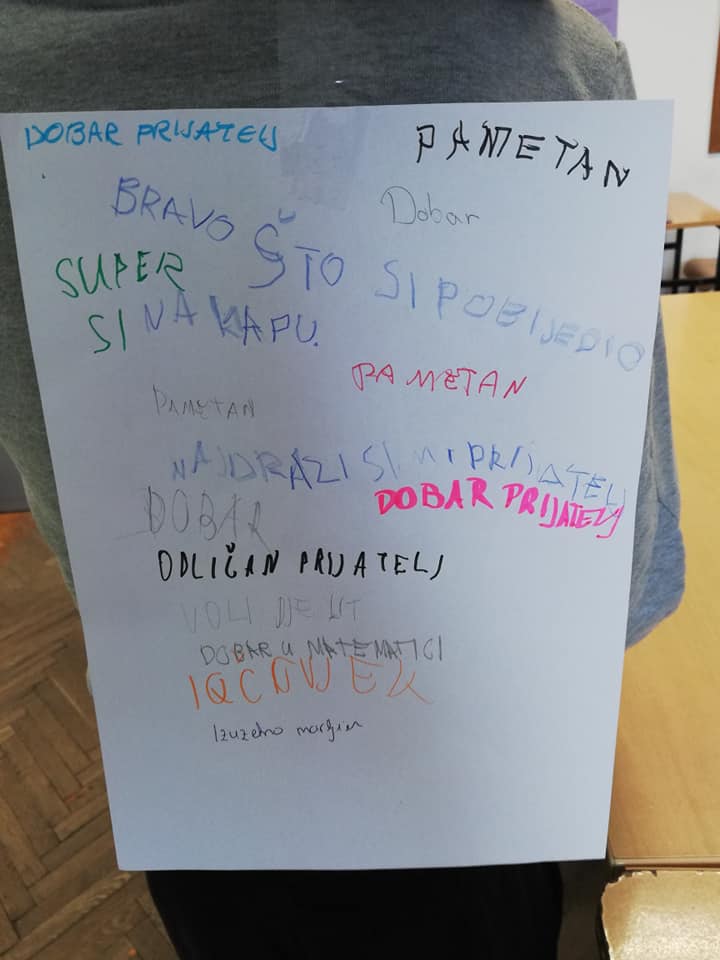 DOBAR PRIJATELJ
PAMETAN
BRAVO ŠTO SI POBIJEDIO
NA KAPU.
Dobar
SUPER
SI
PAMETAN
PAMETAN
NAJDRAZI SI MI PRIJATELJ
DOBAR
DOBAR PRIJATELJ
ODLIČAN PRIJATELJ
VOLI
DOBAR U MATEMATICI
Izuzetno marljiv